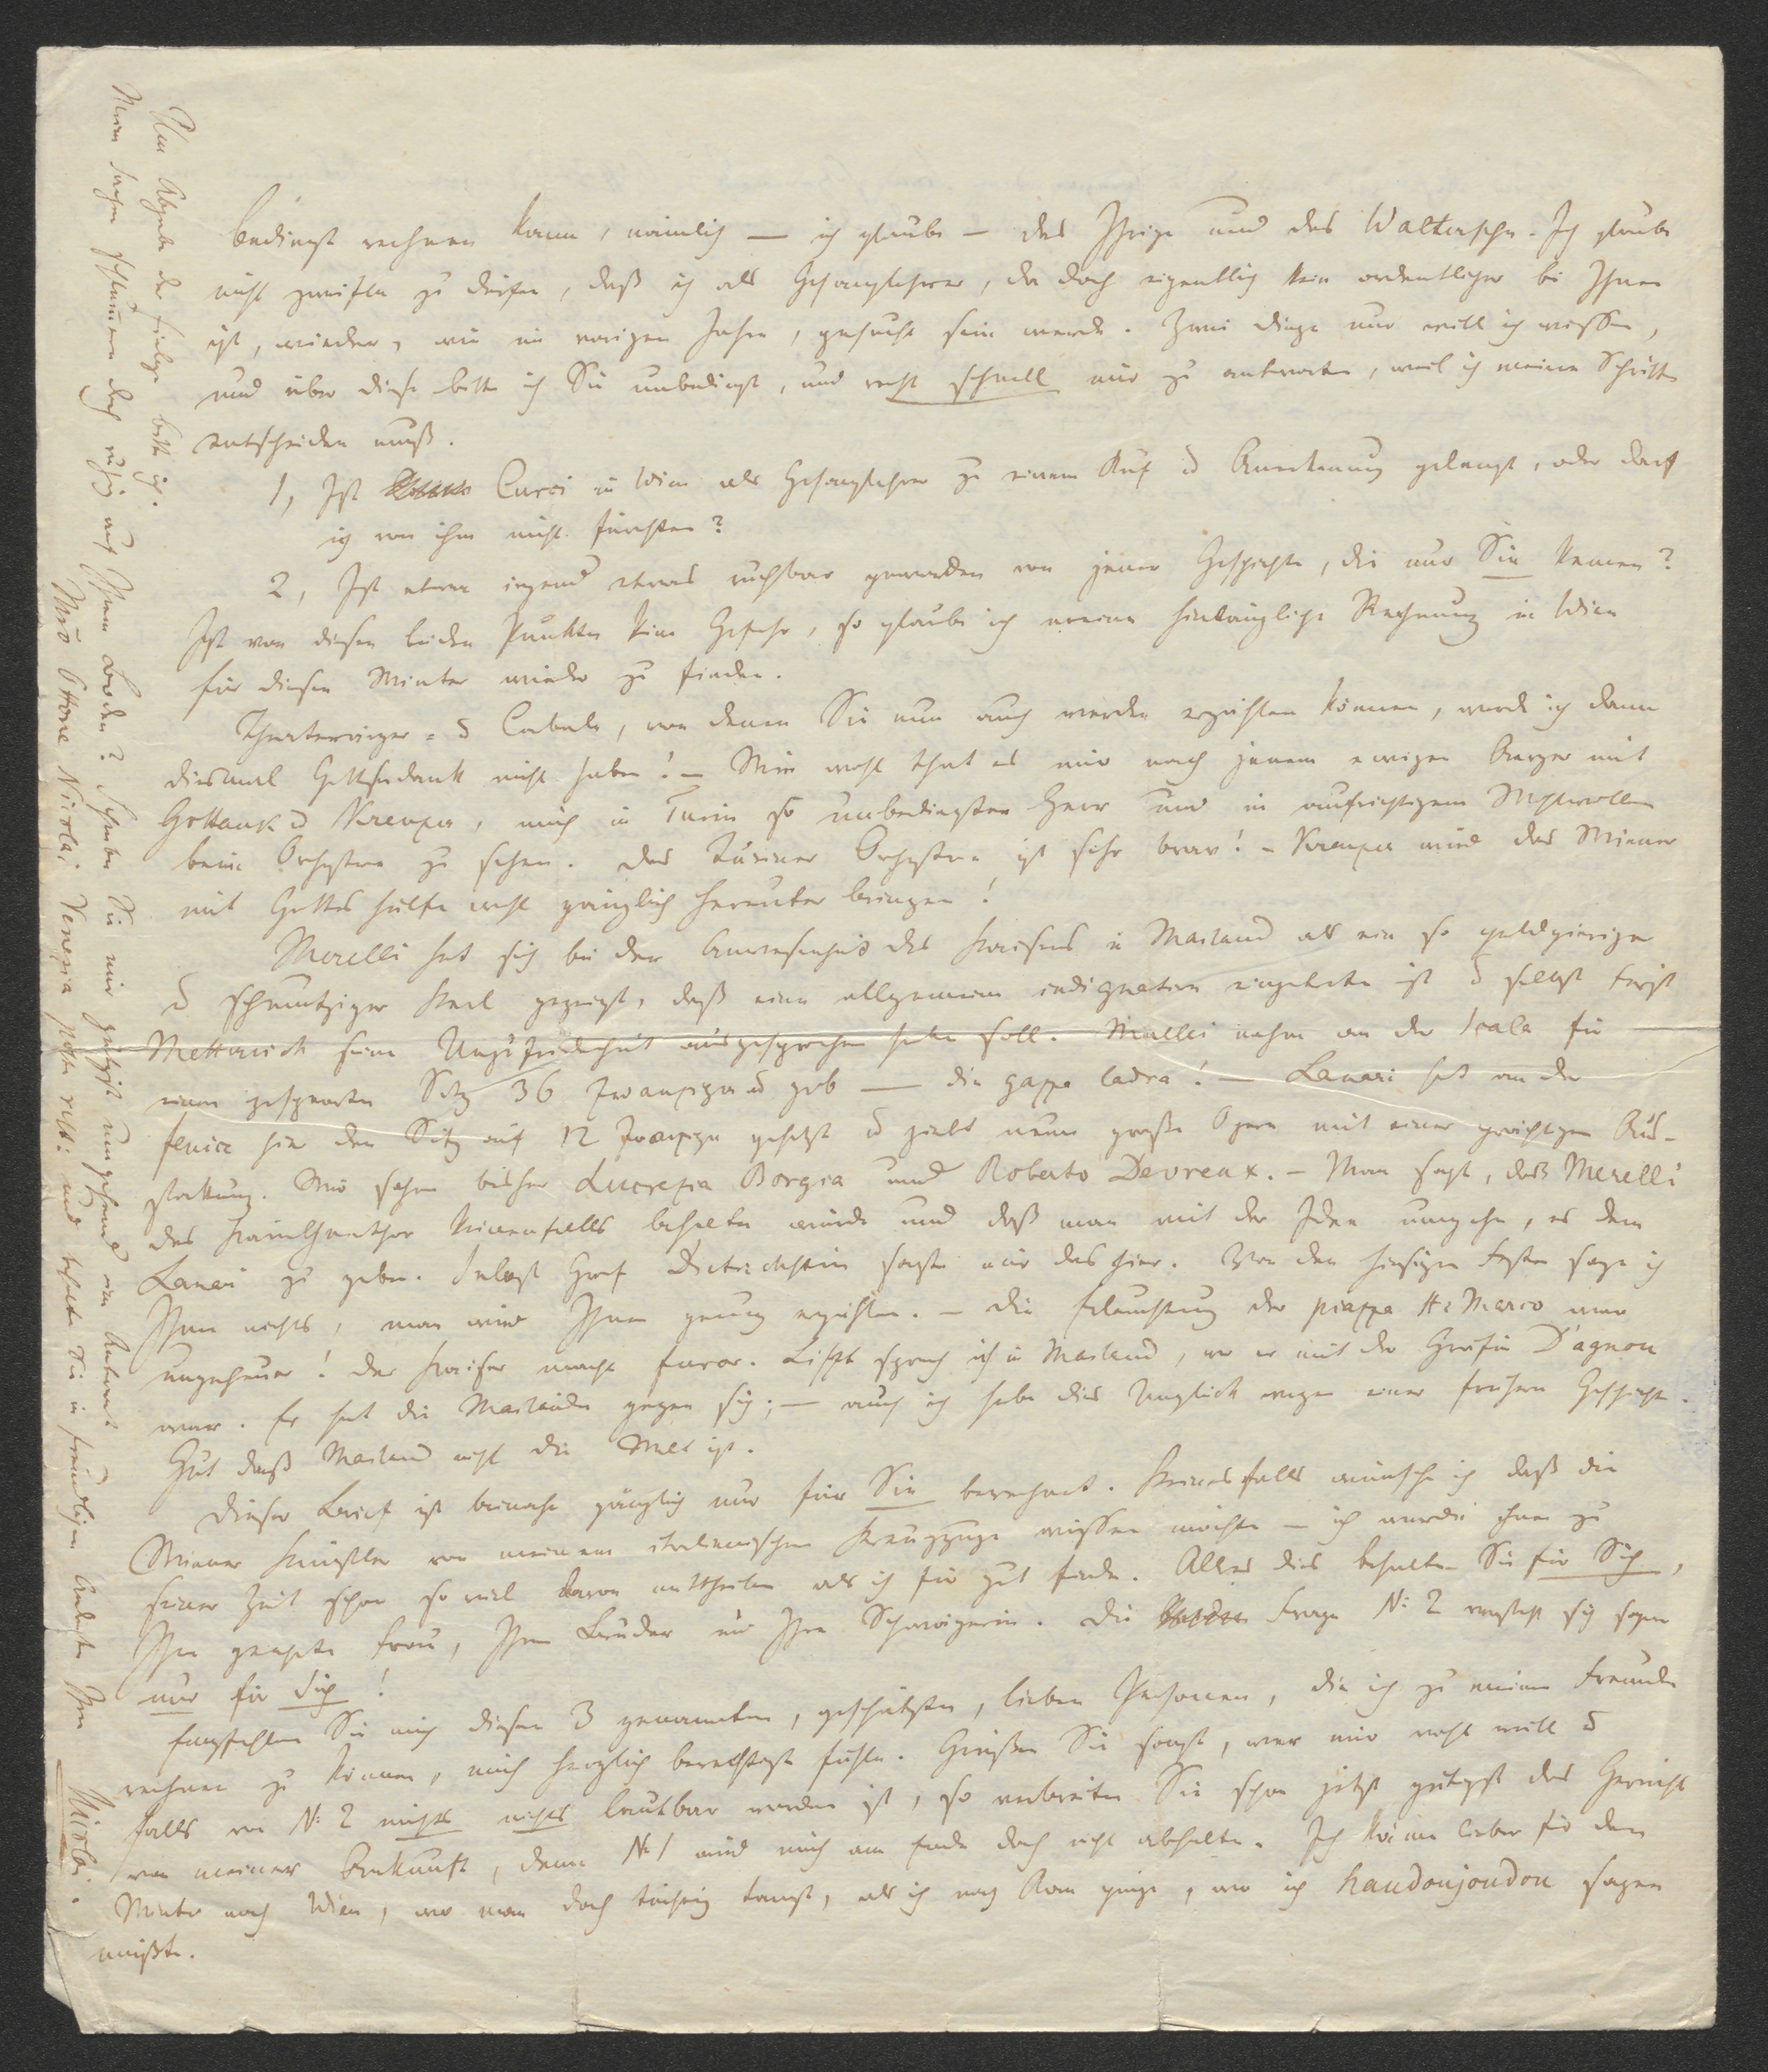 bedingt rechnen kann, nämlich — ich glaube — das Ihrige und das Waltersche. Ich glaube
nicht zweifeln zu dürfen, daß ich als Gesanglehrer, da doch eigentlich kein ordentlicher bei Ihnen
ist, wieder, wie im vorigen Jahre, gesucht sein werde. Zwei Dinge nur will ich wissen,
und über diese bitte ich Sie unbedingt, und recht schnell mir zu antworten, weil ich meine Schritte
entscheiden muß.
1, Ist Curci in Wien als Gesanglehrer zu einem Ruf u Anerkennung gelangt, oder darf
ich von ihm nichts fürchten?
2, Ist etwa irgend etwas ruchbar geworden von jener Geschichte, die nur Sie kennen?
Ist von diesen beiden Punkten keine Gefahr, so glaube ich meine hinlängliche Rechnung in Wien
für diesen Winter wieder zu finden.
Theaterärger = u Cabale, von denen Sie nun auch werden erzählen können, werde ich dann
diesmal Gottseidank nicht haben! — Wie wohl that es mir nach jenem ewigen Aerger mit
Gottdank u Kreuzer, mich in Turin so unbedingter Herr und in aufrichtigem Wohlwollen
beim Orchester zu sehen. Das Turiner Orchester ist sehr brav! — Kreuzer wird das Wiener
mit Gottes Hülfe wohl gänzlich herunter bringen!
Merelli hat sich bei der Anwesenheit des Kaisers in Mailand als ein so geldgieriger
u schmutziger Kerl gezeigt, daß eine allgemeine indignation eingetreten ist u selbst Fürst
Metternich seine Unzufriedenheit ausgesprochen haben soll. Merelli nahm an der Scala für
einen gesperrten Sitz 36 Zwanziger u gab — die gazza ladra! — Lanari hat an der
Fenice hier den Sitz auf 12 Zwanziger gesetzt u giebt neue große Opern mit einer prächtigen Aus-
stattung. Wir sahen bisher Lucrezia Borgia und Roberto Devreux. — Man sagt, daß Merelli
das Kärnthnerthor keinenfalls behalten würde und daß man mit der Idee umgehe, es dem
Lanari zu geben. Selbst Graf Dietrichstein sagte mir das hier. Von den hiesigen Festen sage ich
Ihnen nichts, man wird Ihnen genug erzählen. — Die Erleuchtung der piazza St Marco war
ungeheuer! Der Kaiser macht furor. Liszt sprach ich in Mailand, wo er mit der Gräfin D'agnou
war. Er hat die Mailänder gegen sich; — auch ich habe dies Unglück wegen einer frühern Geschichte.
Gut daß Mailand nicht die Welt ist.
Dieser Brief ist beinahe gänzlich nur für Sie berechnet. Keinesfalls wünsche ich daß die
Wiener Künstler von meinem italienischen Kreuzzuge wissen möchten — ich werde ihnen zu
seiner Zeit schon so viel davon mittheilen als ich für gut finde. Alles dies behalten Sie für Sich,
Ihre geehrte Frau, Ihren Bruder und Ihre Schwägerin. Die Frage N: 2 versteht sich sogar
nur für Sich!
Empfehlen Sie mich diesen 3 genannten, geschätzten, lieben Personen, die ich zu meinen Freunden
rechnen zu können, mich herzlich berechtigt fühle. Grüßen Sie sonst, wer mir wohl will u
falls von N: 2 nichts nichts lautbar worden ist, so verbreiten Sie schon jetzt gütigst das Gerücht
von meiner Ankunft, denn N 1 wird mich am Ende doch nicht abhalten. Ich käme lieber für den
Winter nach Wien, wo man doch tüchtig tanzt, als ich nach Rom ginge, wo ich haudoujoudou sagen
müßte.
Um Abgabe der Einlage bitte ich.
Meine Sachen schlummern doch ruhig auf Ihrem Boden? Schreiben Sie mir gütigst umgehend eine Antwort
Mro Ottone Nicolai Venezia poste rest: und behalten Sie in freundlichem Andenken Ihren
Nicolai.